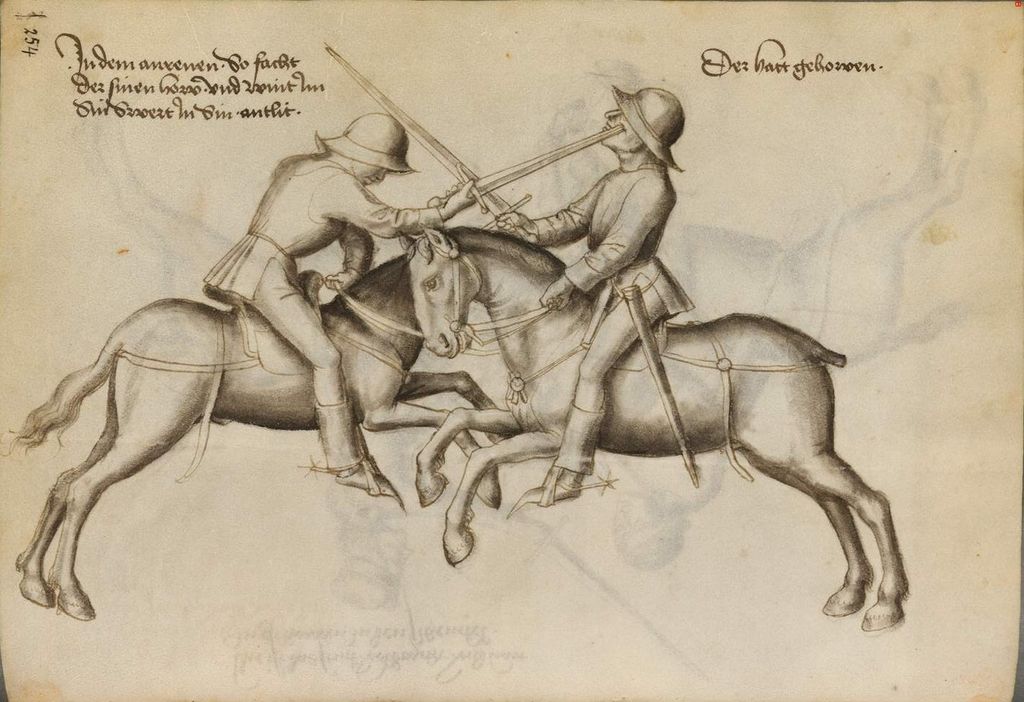 254
In dem anreiten. So facht
Der sinen how. vnd wint Im
Sin Swert In Sin antlit.
Der hatt gehowen.